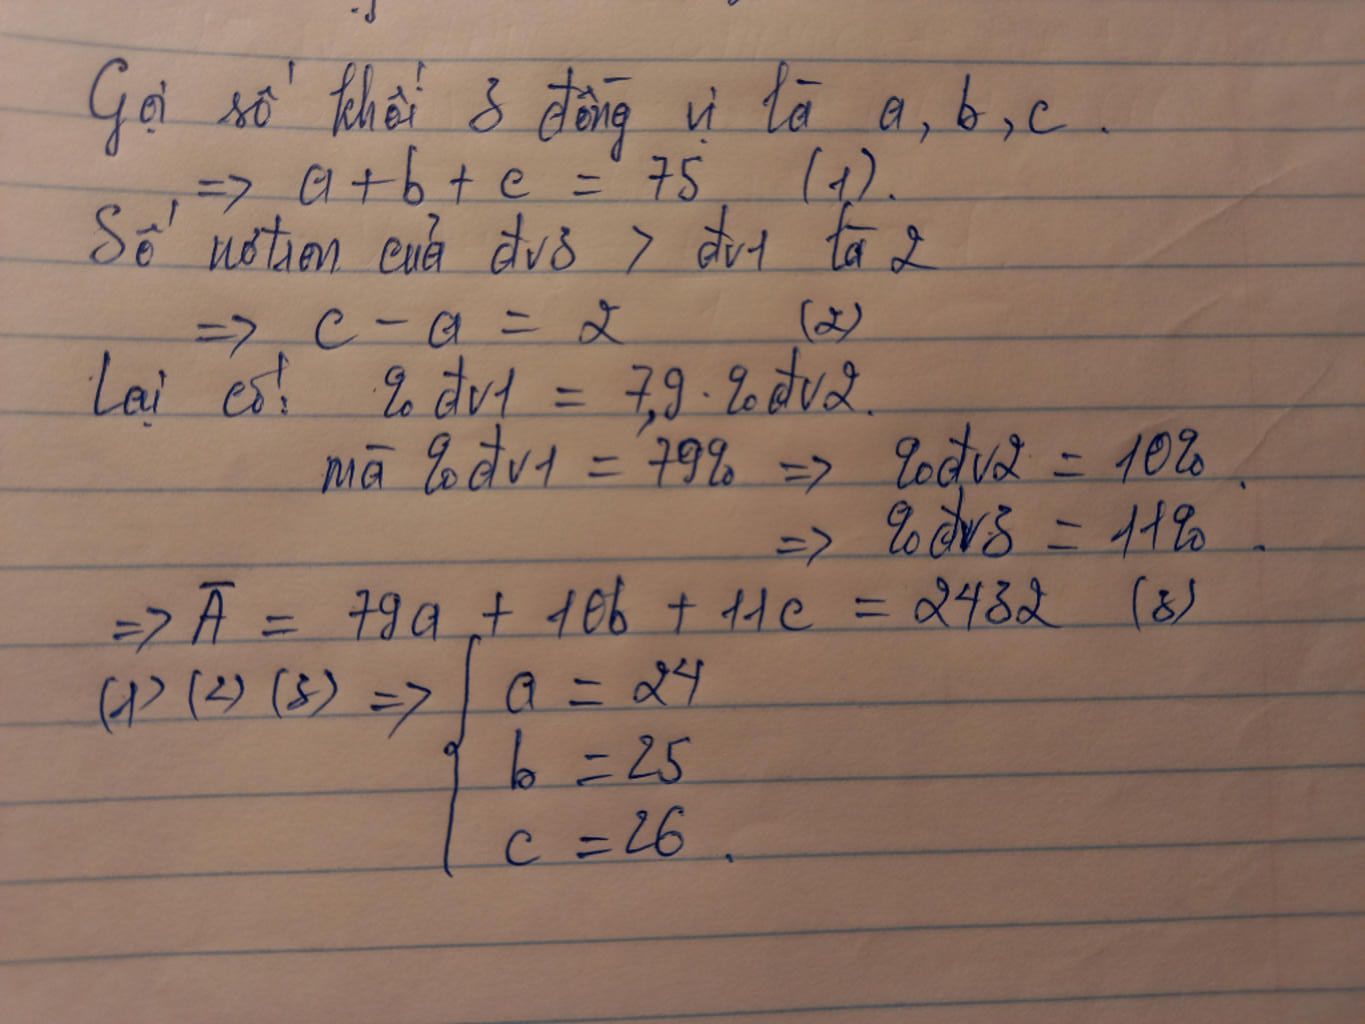 Gọi số khối 3 đồng vị là a, b, c.
=> a + b + c = 75 (1).
Số nơtron của đv3 > đv1 là 2
=> c - a = 2 (2)
Lại có: % đv1 = 7,9 . % đv2.
mà % đv1 = 79% => % đv2 = 10%.
=> % đv3 = 11%.
=> Ā = 79a + 10b + 11c = 2432 (3)
(1) (2) (3) => { a = 24
b = 25
c = 26.